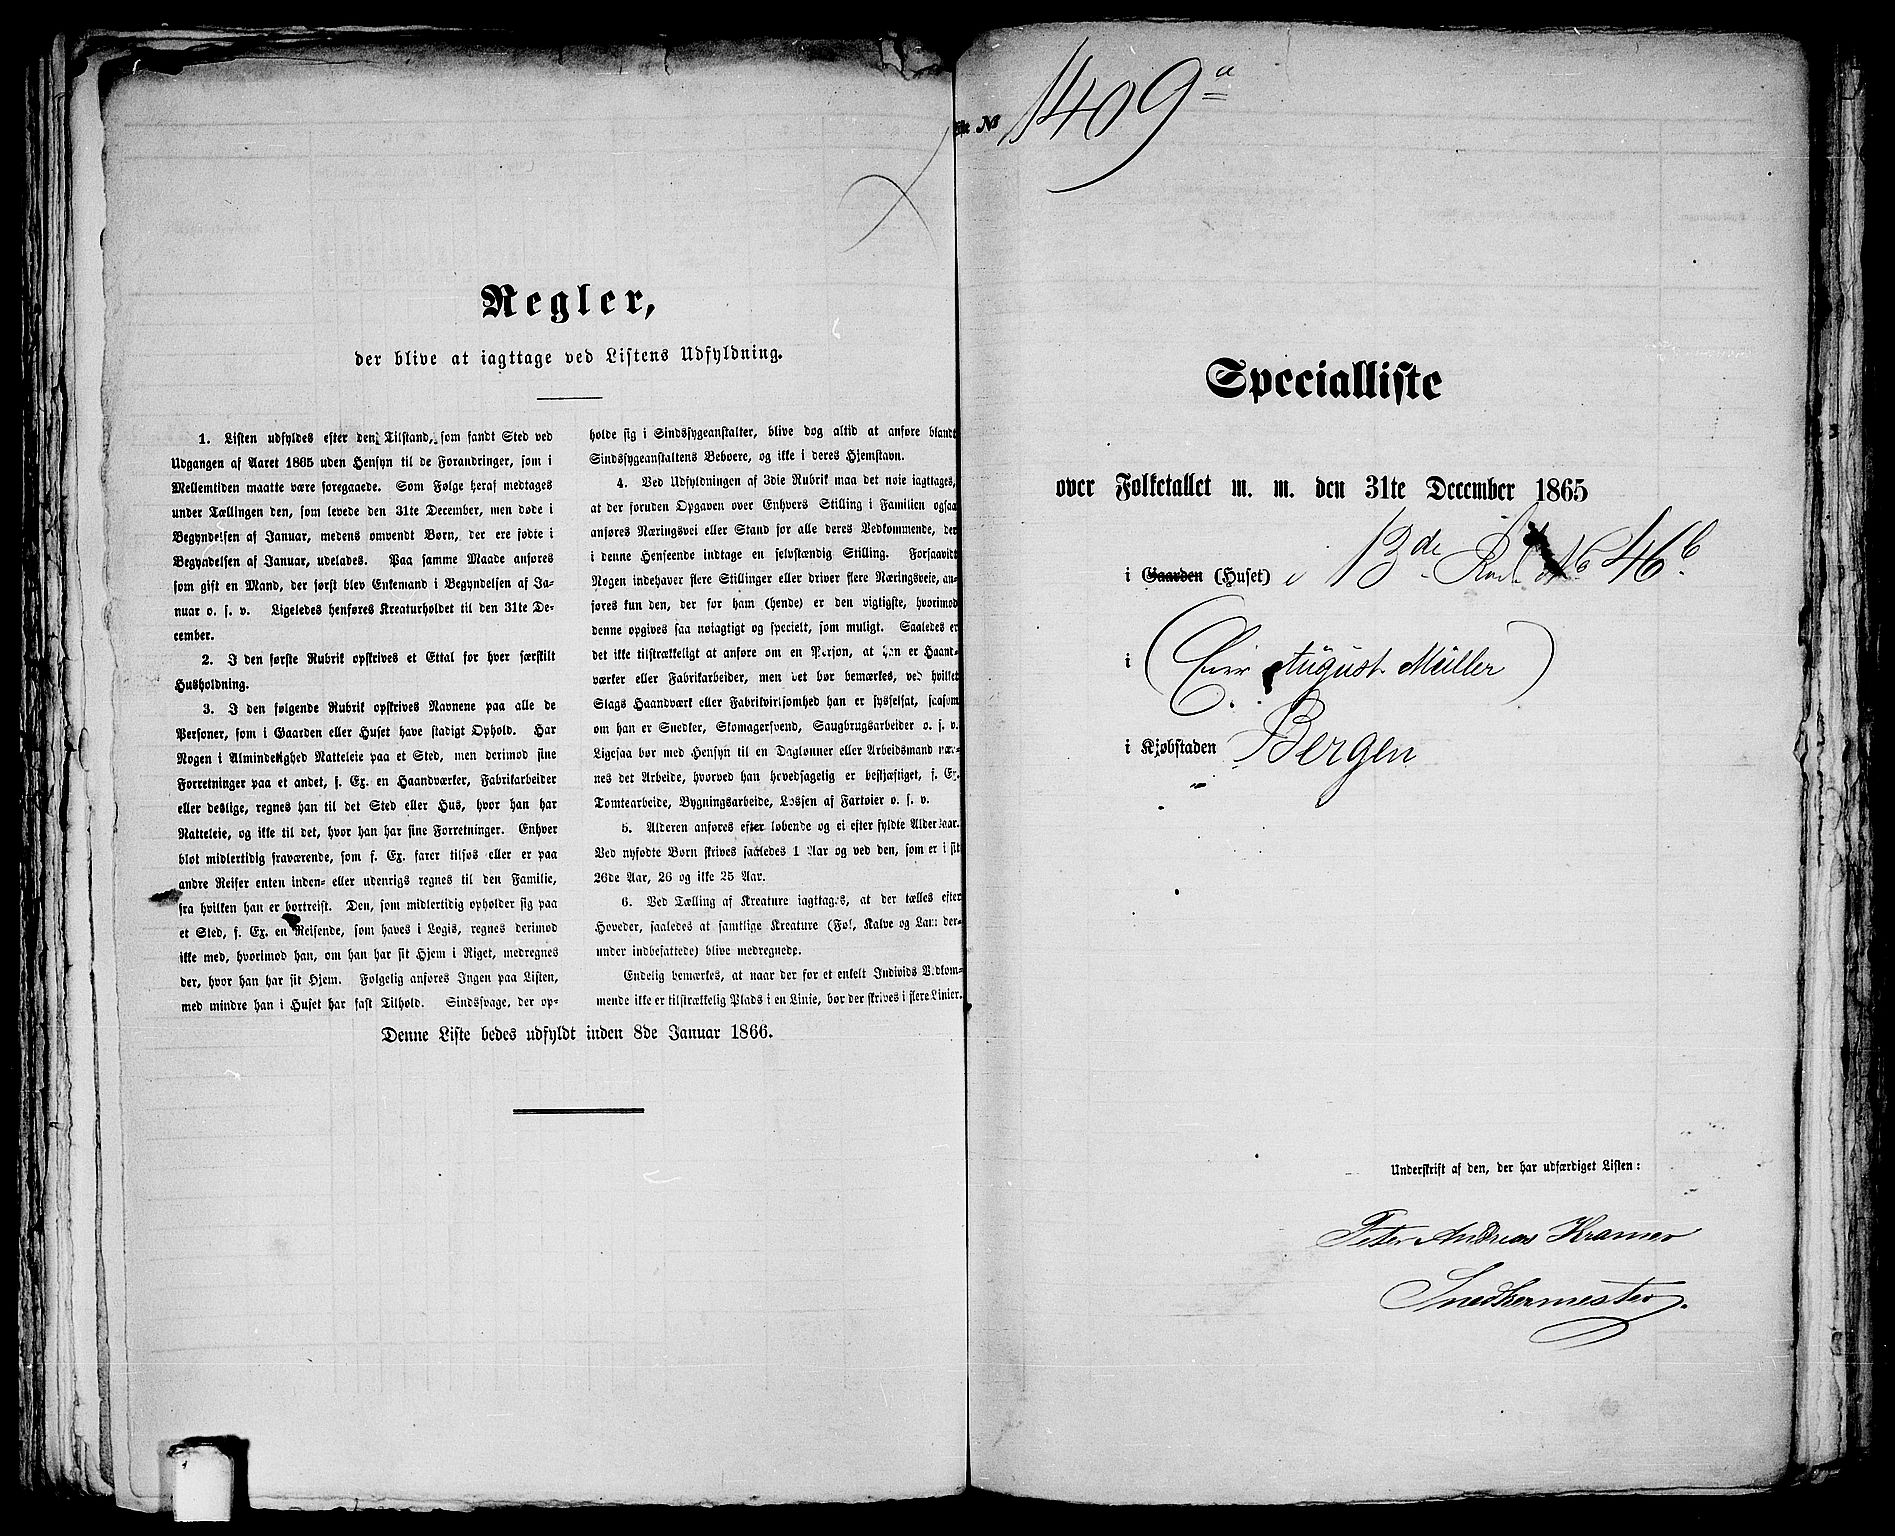 Regler,
der blive at iagttage ved Listens Udfyldning.
1. Listen udfyldes efter den Tilstand, som fandt Sted ved
Udgangen af Aaret 1865 uden Hensyn til de Forandringer, som i
Mellemtiden maatte være foregaaede. Som Følge heraf medtages
under Tællingen den, som levede den 31te December, men døde i
Begyndelsen af Januar, medens omvendt Børn, der ere fødte i
Begyndelsen af Januar, udelades. Paa samme Maade anføres
som gift en Mand, der først blev Enkemand i Begyndelsen af Ja-
nuar o. s. v. Ligeledes henføres Kreaturholdet til den 31te De-
cember.
2. I den første Rubrik opskrives et Ettal for hver særskilt
Husholdning.
3. I den følgende Rubrik opskrives Navnene paa alle de
Personer, som i Gaarden eller Huset have stadigt Ophold. Har
Nogen i Almindelighed Natteleie paa et Sted, men derimod sine
Forretninger paa et andet, f. Ex. en Haandværker, Fabrikarbeider
eller deslige, regnes han til det Sted eller Hus, hvor han har
Natteleie, og ikke til det, hvor han har sine Forretninger. Enhver
blot midlertidig fraværende, som f. Ex. farer tilsøs eller er paa
andre Reiser enten inden- eller udenrigs regnes til den Familie,
fra hvilken han er bortreist. Den, som midlertidig opholder sig paa
et Sted, f. Ex. en Reisende, som haves i Logis, regnes derimod
ikke med, hvorimod han, om han har sit Hjem i Riget, medregnes
der, hvor han har sit Hjem. Følgelig anføres Ingen paa Listen,
med mindre han i Huset har fast Tilhold. Sindssvage, der op-
holde sig i Sindssygeanstalter, blive dog altid at anføre blandt
Sindssygeanstaltens Beboere, og ikke i deres Hjemstavn.
4. Ved Udfyldningen af 3die Rubrik maa det nøie iagttages,
at der foruden Opgaven over Enhvers Stilling i Familien ogsaa
anføres Næringsvei eller Stand for alle deres Vedkommende, der
i denne Henseende indtage en selvstændig Stilling. Forsaavidt
Nogen indehaver flere Stillinger eller driver flere Næringsveie, an-
føres kun den, der for ham (hende) er den vigtigste, hvorimod
denne opgives saa nøiagtigt og specielt, som muligt. Saaledes er
det ikke tilstrækkeligt at anføre om en Person, at han er Haand-
værker eller Fabrikarbeider, men det bør bemærkes, ved hvilket
Slags Haandværk eller Fabrikvirksomhed han er sysselsat, saasom
om han er Snedker, Skomagersvend, Saugbrugsarbeider o. s. v.
Ligesaa bør med Hensyn til en Daglønner eller Arbeidsmand næv-
nes det Arbeide, hvorved han hovedsagelig er beskjæftiget, f. Ex.
Tomtearbeide, Bygningsarbeide, Losjen af Fartøier o. s. v.
5. Alderen anføres efter løbende og ei efter fyldte Aldersaar.
Ved nyfødte Børn skrives saaledes 1 Aar og ved den, som er i sit
26de Aar, 26 og ikke 25 Aar.
6. Ved Tælling af Kreature iagttages, at der tælles efter
Hoveder, saaledes at samtlige Kreature (Føl, Kalve og Lam der-
under indbefattede) blive medregnede.
Endelig bemærkes, at naar der for et enkelt Individs Vedkom-
mende ikke er tilstrækkelig Plads i en Linie, bør der skrives i flere Linier.
Denne Liste bedes udfyldt inden 8de Januar 1866.
No 1409a
Specialliste
over Folketallet m. m. den 31te December 1865
i Gaarden (Huset) i 13de Rode No 46b
i (Eier August Müller)
i Kjøbstaden Bergen
Underskrift af den, der har udfærdiget Listen:
Peter Andreas Kramer
Snedkermester.